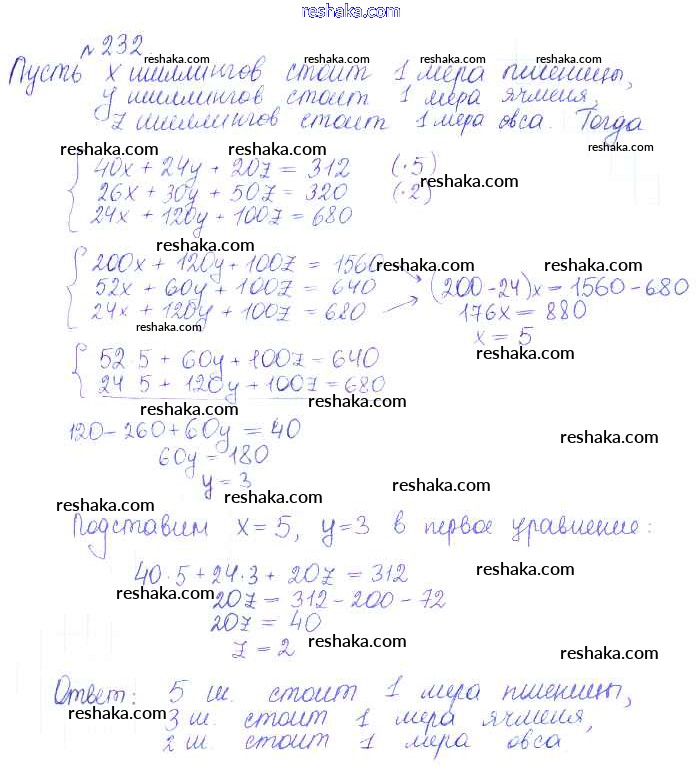 reshaka.com
№ 232.
reshaka.com reshaka.com reshaka.com
Пусть x шиллингов стоит 1 мера пшеницы,
reshaka.com reshaka.com reshaka.com
y шиллингов стоит 1 мера ячменя,
z шиллингов стоит 1 мера овса. Тогда
reshaka.com reshaka.com reshaka.com
40x + 24y + 20z = 312 (·5)
reshaka.com
26x + 30y + 50z = 320 (·2)
24x + 120y + 100z = 680
reshaka.com reshaka.com
200x + 120y + 100z = 1560
reshaka.com reshaka.com reshaka.com
52x + 60y + 100z = 640 (200-24)x = 1560-680
24x + 120y + 100z = 680 176x = 880
reshaka.com
x = 5
reshaka.com
52·5 + 60y + 100z = 640
24·5 + 120y + 100z = 680
reshaka.com reshaka.com
120-260+60y = 40
reshaka.com
60y = 180
y = 3
reshaka.com reshaka.com reshaka.com
Подставим x=5, y=3 в первое уравнение:
reshaka.com
40·5 + 24·3 + 20z = 312
reshaka.com
20z = 312 - 200 - 72
20z = 40
z = 2
reshaka.com reshaka.com
Ответ: 5 ш. стоит 1 мера пшеницы,
reshaka.com reshaka.com reshaka.com
3 ш. стоит 1 мера ячменя,
2 ш. стоит 1 мера овса.
reshaka.com reshaka.com